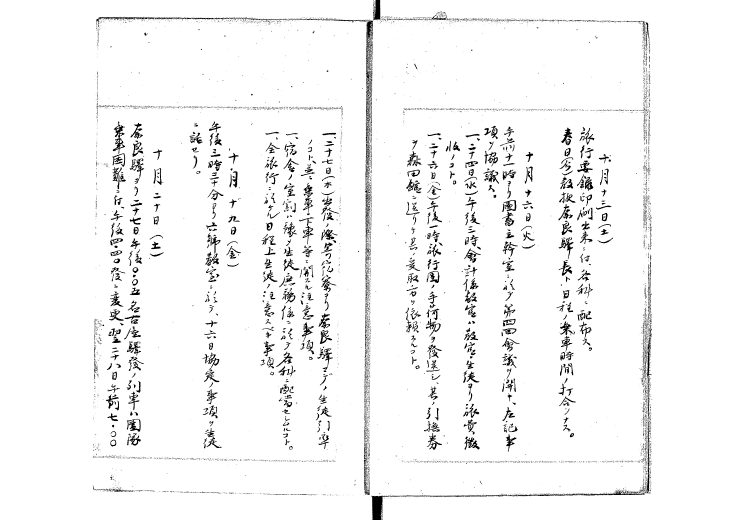 十月十三日(土)
旅行要録印刷出来ニ付、各科ニ配布ス。
春日(光)教授奈良驛長ト日程ノ乗車時間ノ打合ヲナス。
十月十六日(火)
午前十一時ヨリ圖書主幹室ニ於テ第四回會議ヲ開キ、左記事
項ヲ協議ス。
一、二十四日(水)午後三時、會計係教官ハ教室ニ生徒ヨリ旅費徴
收ノコト。
一、二十六日(金)午後一時旅行團ノ手荷物ヲ發送シ、其ノ引換券
ヲ森田館ニ送リテ其ノ受取方ヲ依頼スルコト。
一、二十七日(木)出發ノ際、寄宿寮ヨリ奈良驛マデノ生徒引率
ノコト並ニ乗車下車等ニ関スル注意事項。
一、宿舎ノ室割ハ豫メ生徒庶務係ニ於テ各科ニ配當セシムルコト。
一、全旅行ニ於ケル日程上生徒ノ注意スベキ事項。
十月十九日(金)
午後三時三十分ヨリ六號教室ニ於テ、十六日協定ノ事項ヲ生徒
ニ話セリ。
十月二十日(土)
奈良驛ヨリ二十七日午後〇・〇五名古屋驛發ノ列車ハ團隊
乗車困難ニ付、午後四・四〇發ニ変更、翌二十八日午前七・〇〇